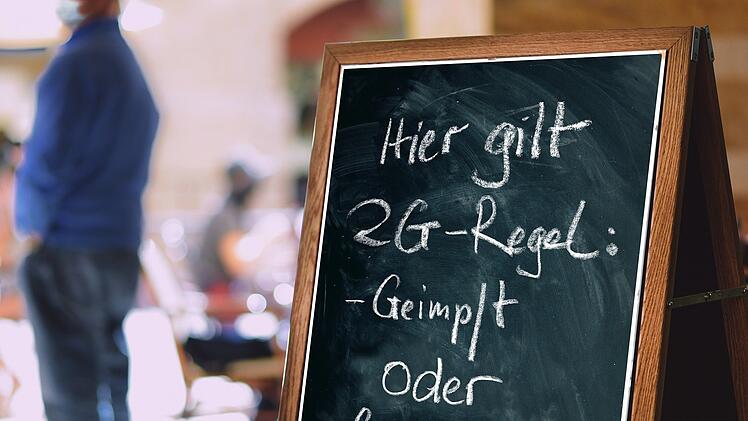 Hier gilt
2G-Regel:
-Geimpft
oder